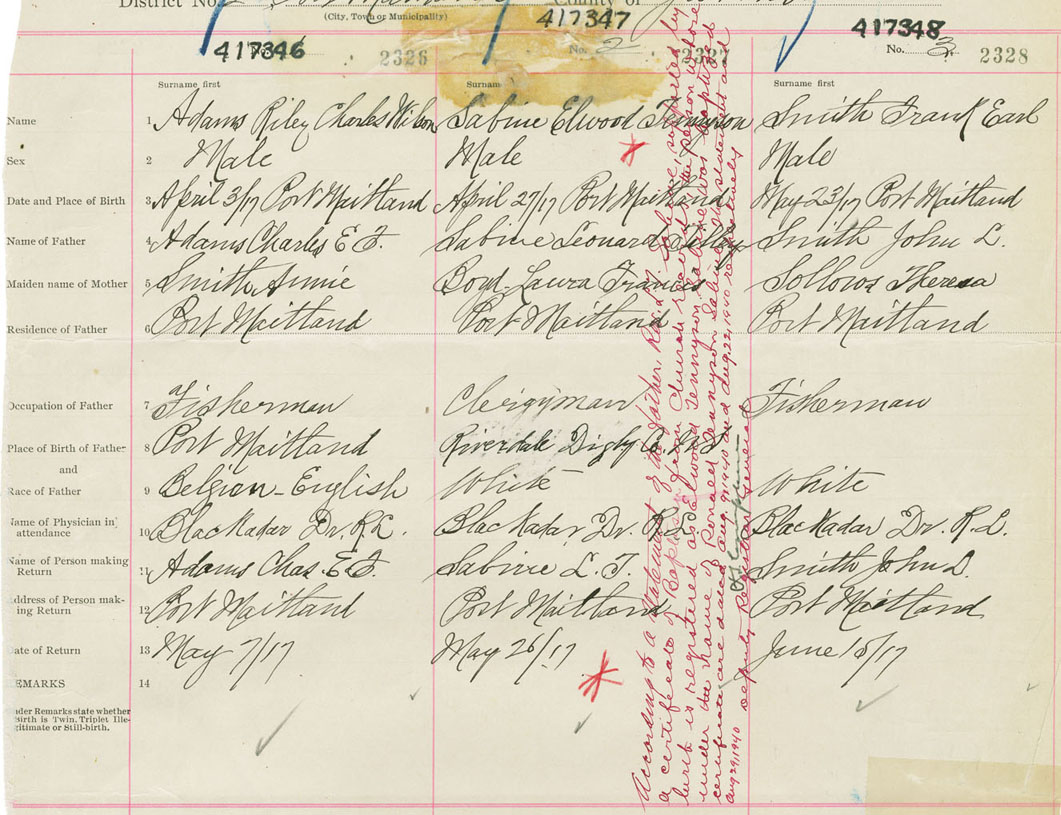 District No. Port Maitland County of
(City, Town or Municipality)
417346 417347 417348
2326 No. 2 No. 3 2328
Surname first Surname Surname first
Name 1 Adams Riley Charles Wilson Sabine Elwood Tennyson Smith Frank Earl
Sex 2 Male Male Male
Date and Place of Birth 3 April 3/17 Port Maitland April 27/17 Port Maitland May 23/17 Port Maitland
Name of Father 4 Adams Charles E F. Sabine Leonard Smith John L.
Maiden name of Mother 5 Smith Annie Laura Frances Sollows Theresa
Residence of Father 6 Port Maitland Port Maitland Port Maitland
Occupation of Father 7 Fisherman Clergyman Fisherman
Place of Birth of Father 8 Port Maitland Riverdale Digby Co. N.S
and
Race of Father 9 Belgian-English White White
Name of Physician in attendance 10 Blackadar Dr. R.L. Blackadar Dr. R.L. Blackadar Dr. R.L.
Name of Person making Return 11 Adams Chas. E.F. Sabine L. T. Smith John L.
Address of Person making Return 12 Port Maitland Port Maitland Port Maitland
Date of Return 13 May 7/17 May 26/17 June 15/17
EMARKS 14
nder Remarks state whether
Birth is Twin, Triplet Ille-
gitimate or Still-birth.
According to a statement of the father, Rev. L. T. Sabine, supported by
a certificate of Baptism from Church records the person whose
birth is registered as Elwood Tennyson Sabine was baptized
under the name of Ronald Tennyson Sabine, statement and
certificate are dated Aug. 9, 1940 and Aug. 22, 1940 respectively
Aug 29, 1940 Deputy Registrar General